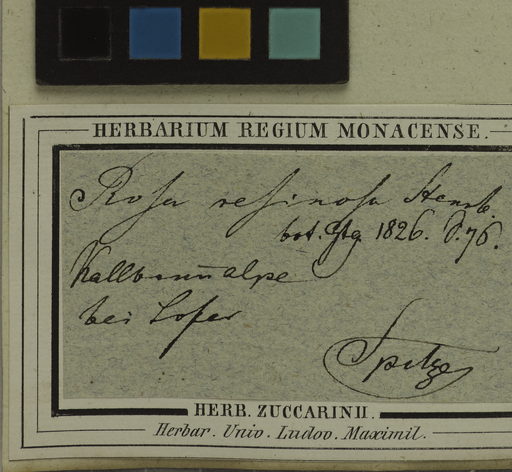 HERBARIUM REGIUM MONACENSE.
Rosa resinosa Sternb.
bot. Ztg. 1826. S. 76.
Kallbrun̄alpe
bei Lofer
Spitzel
HERB. ZUCCARINII.
Herbar. Univ. Ludov. Maximil.